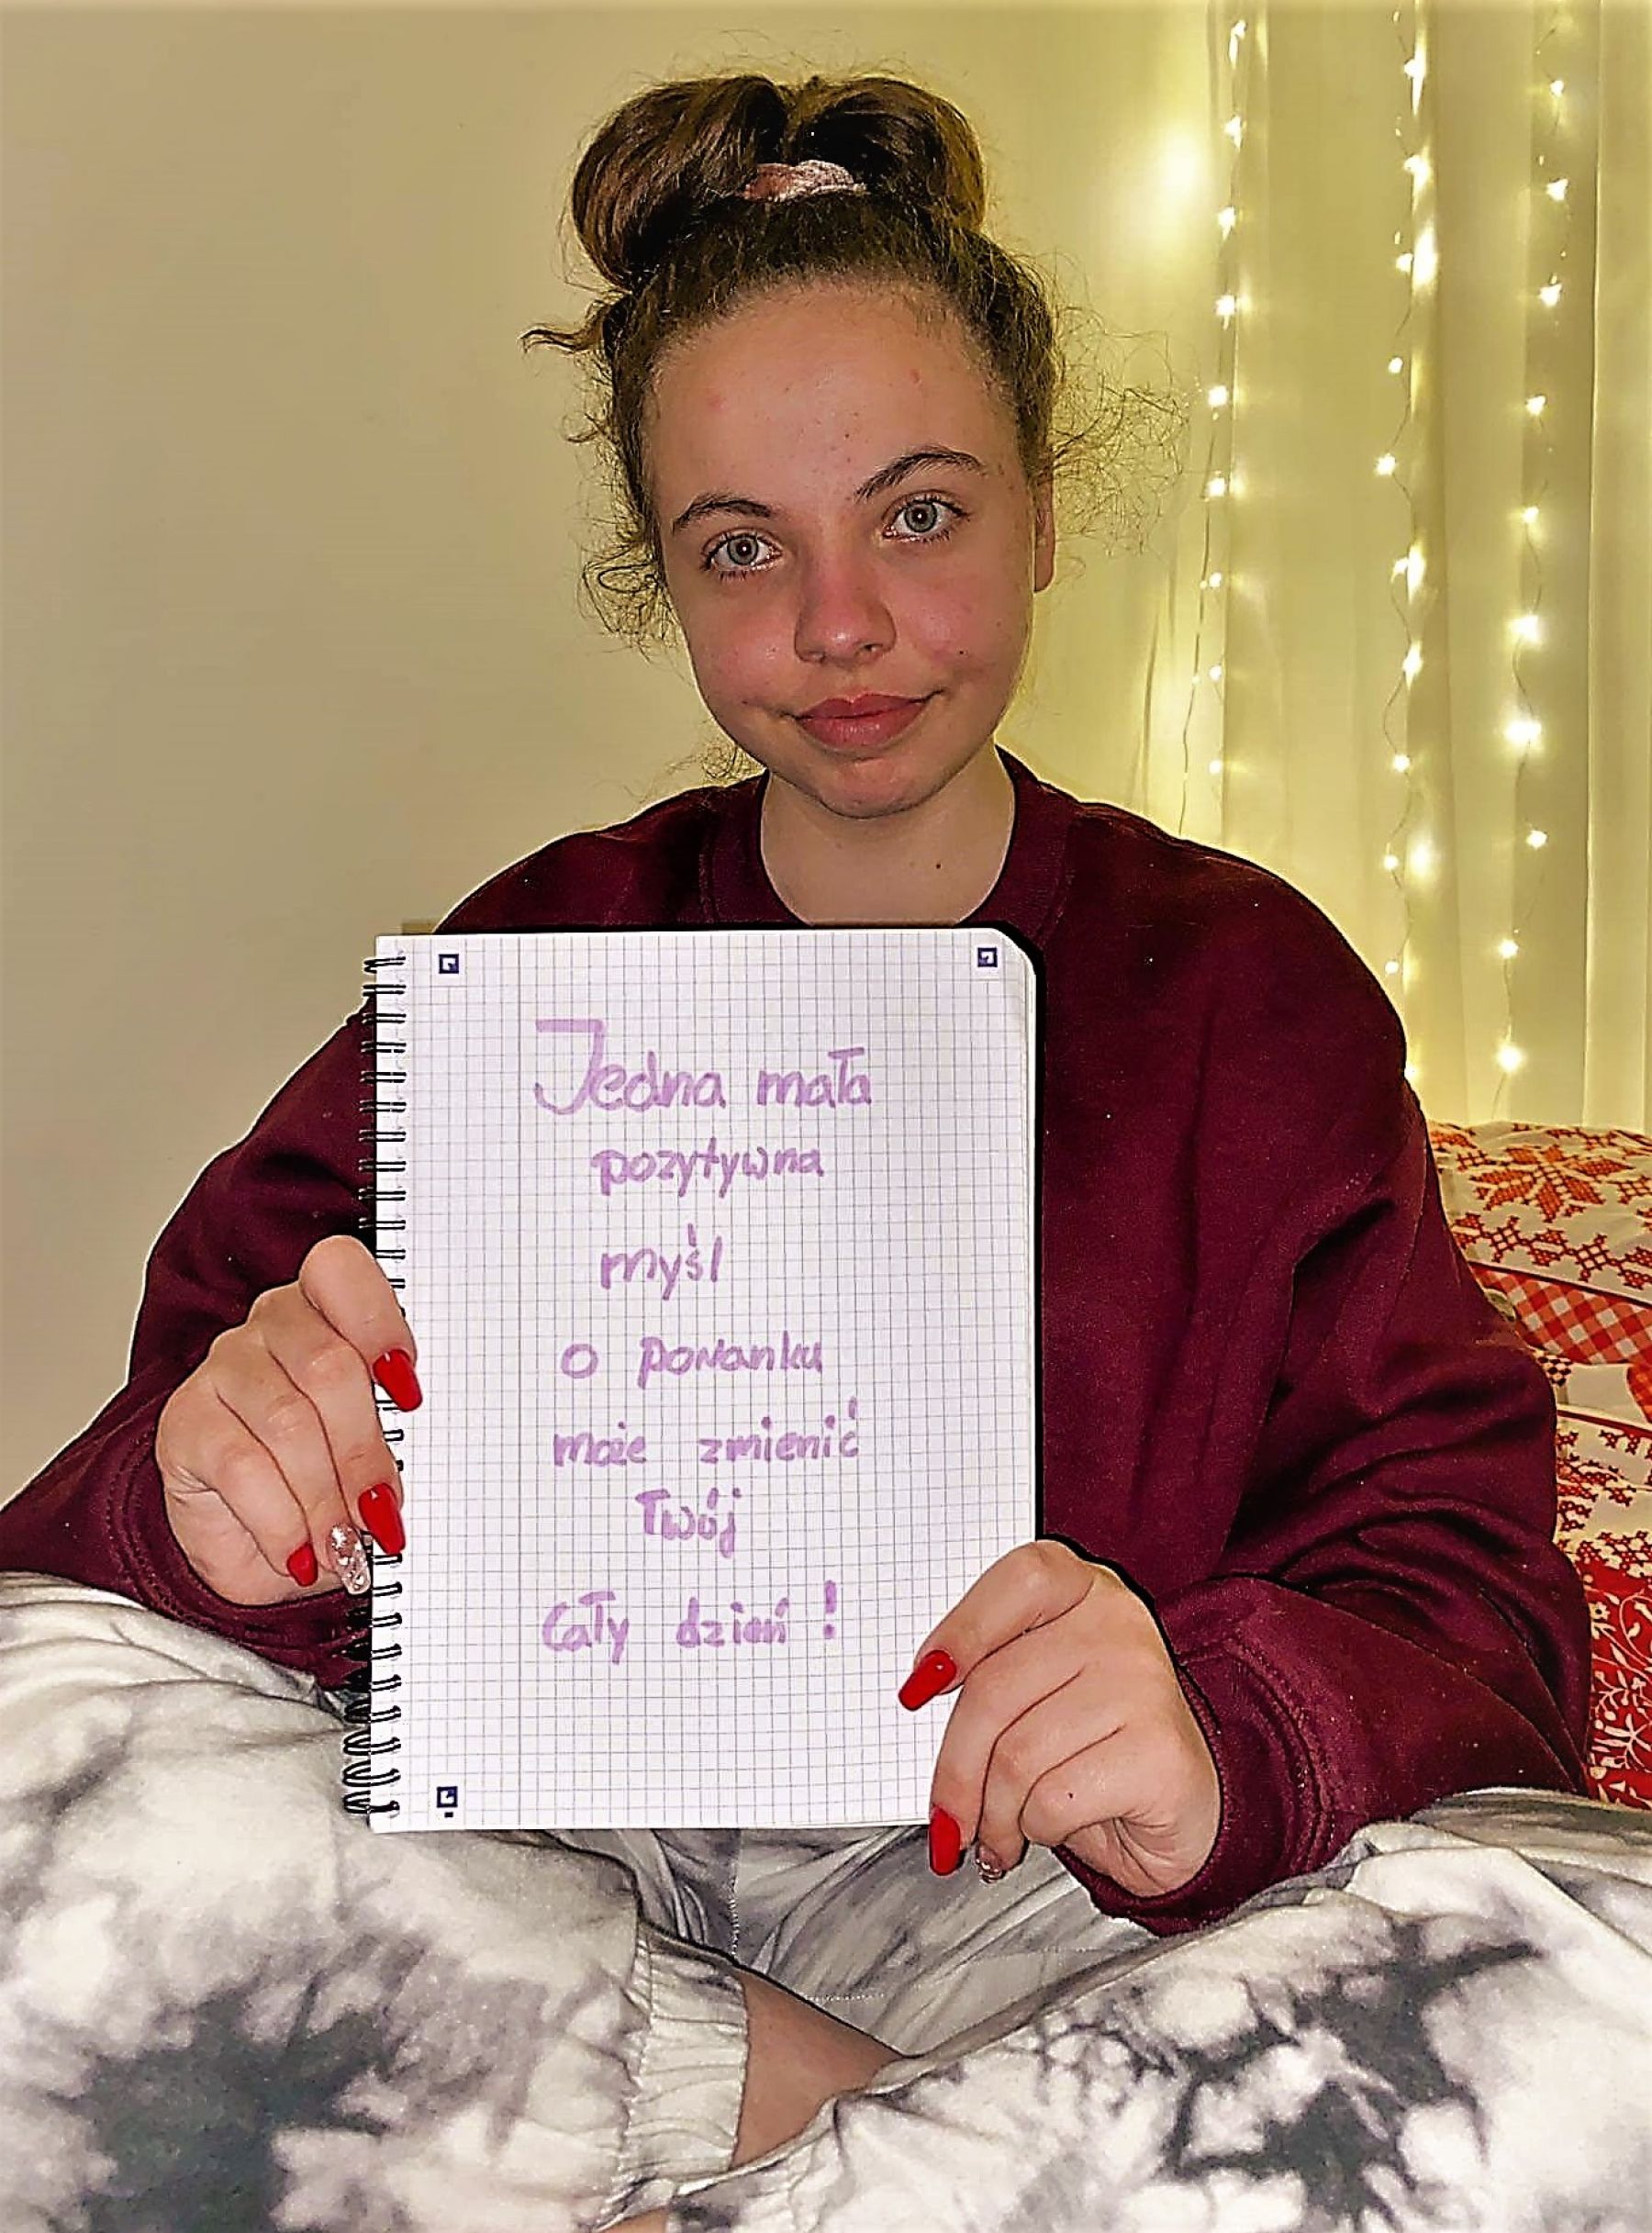 Jedna mała
pozytywna
myśl
o poranku
może zmienić
Twój
Cały dzień !